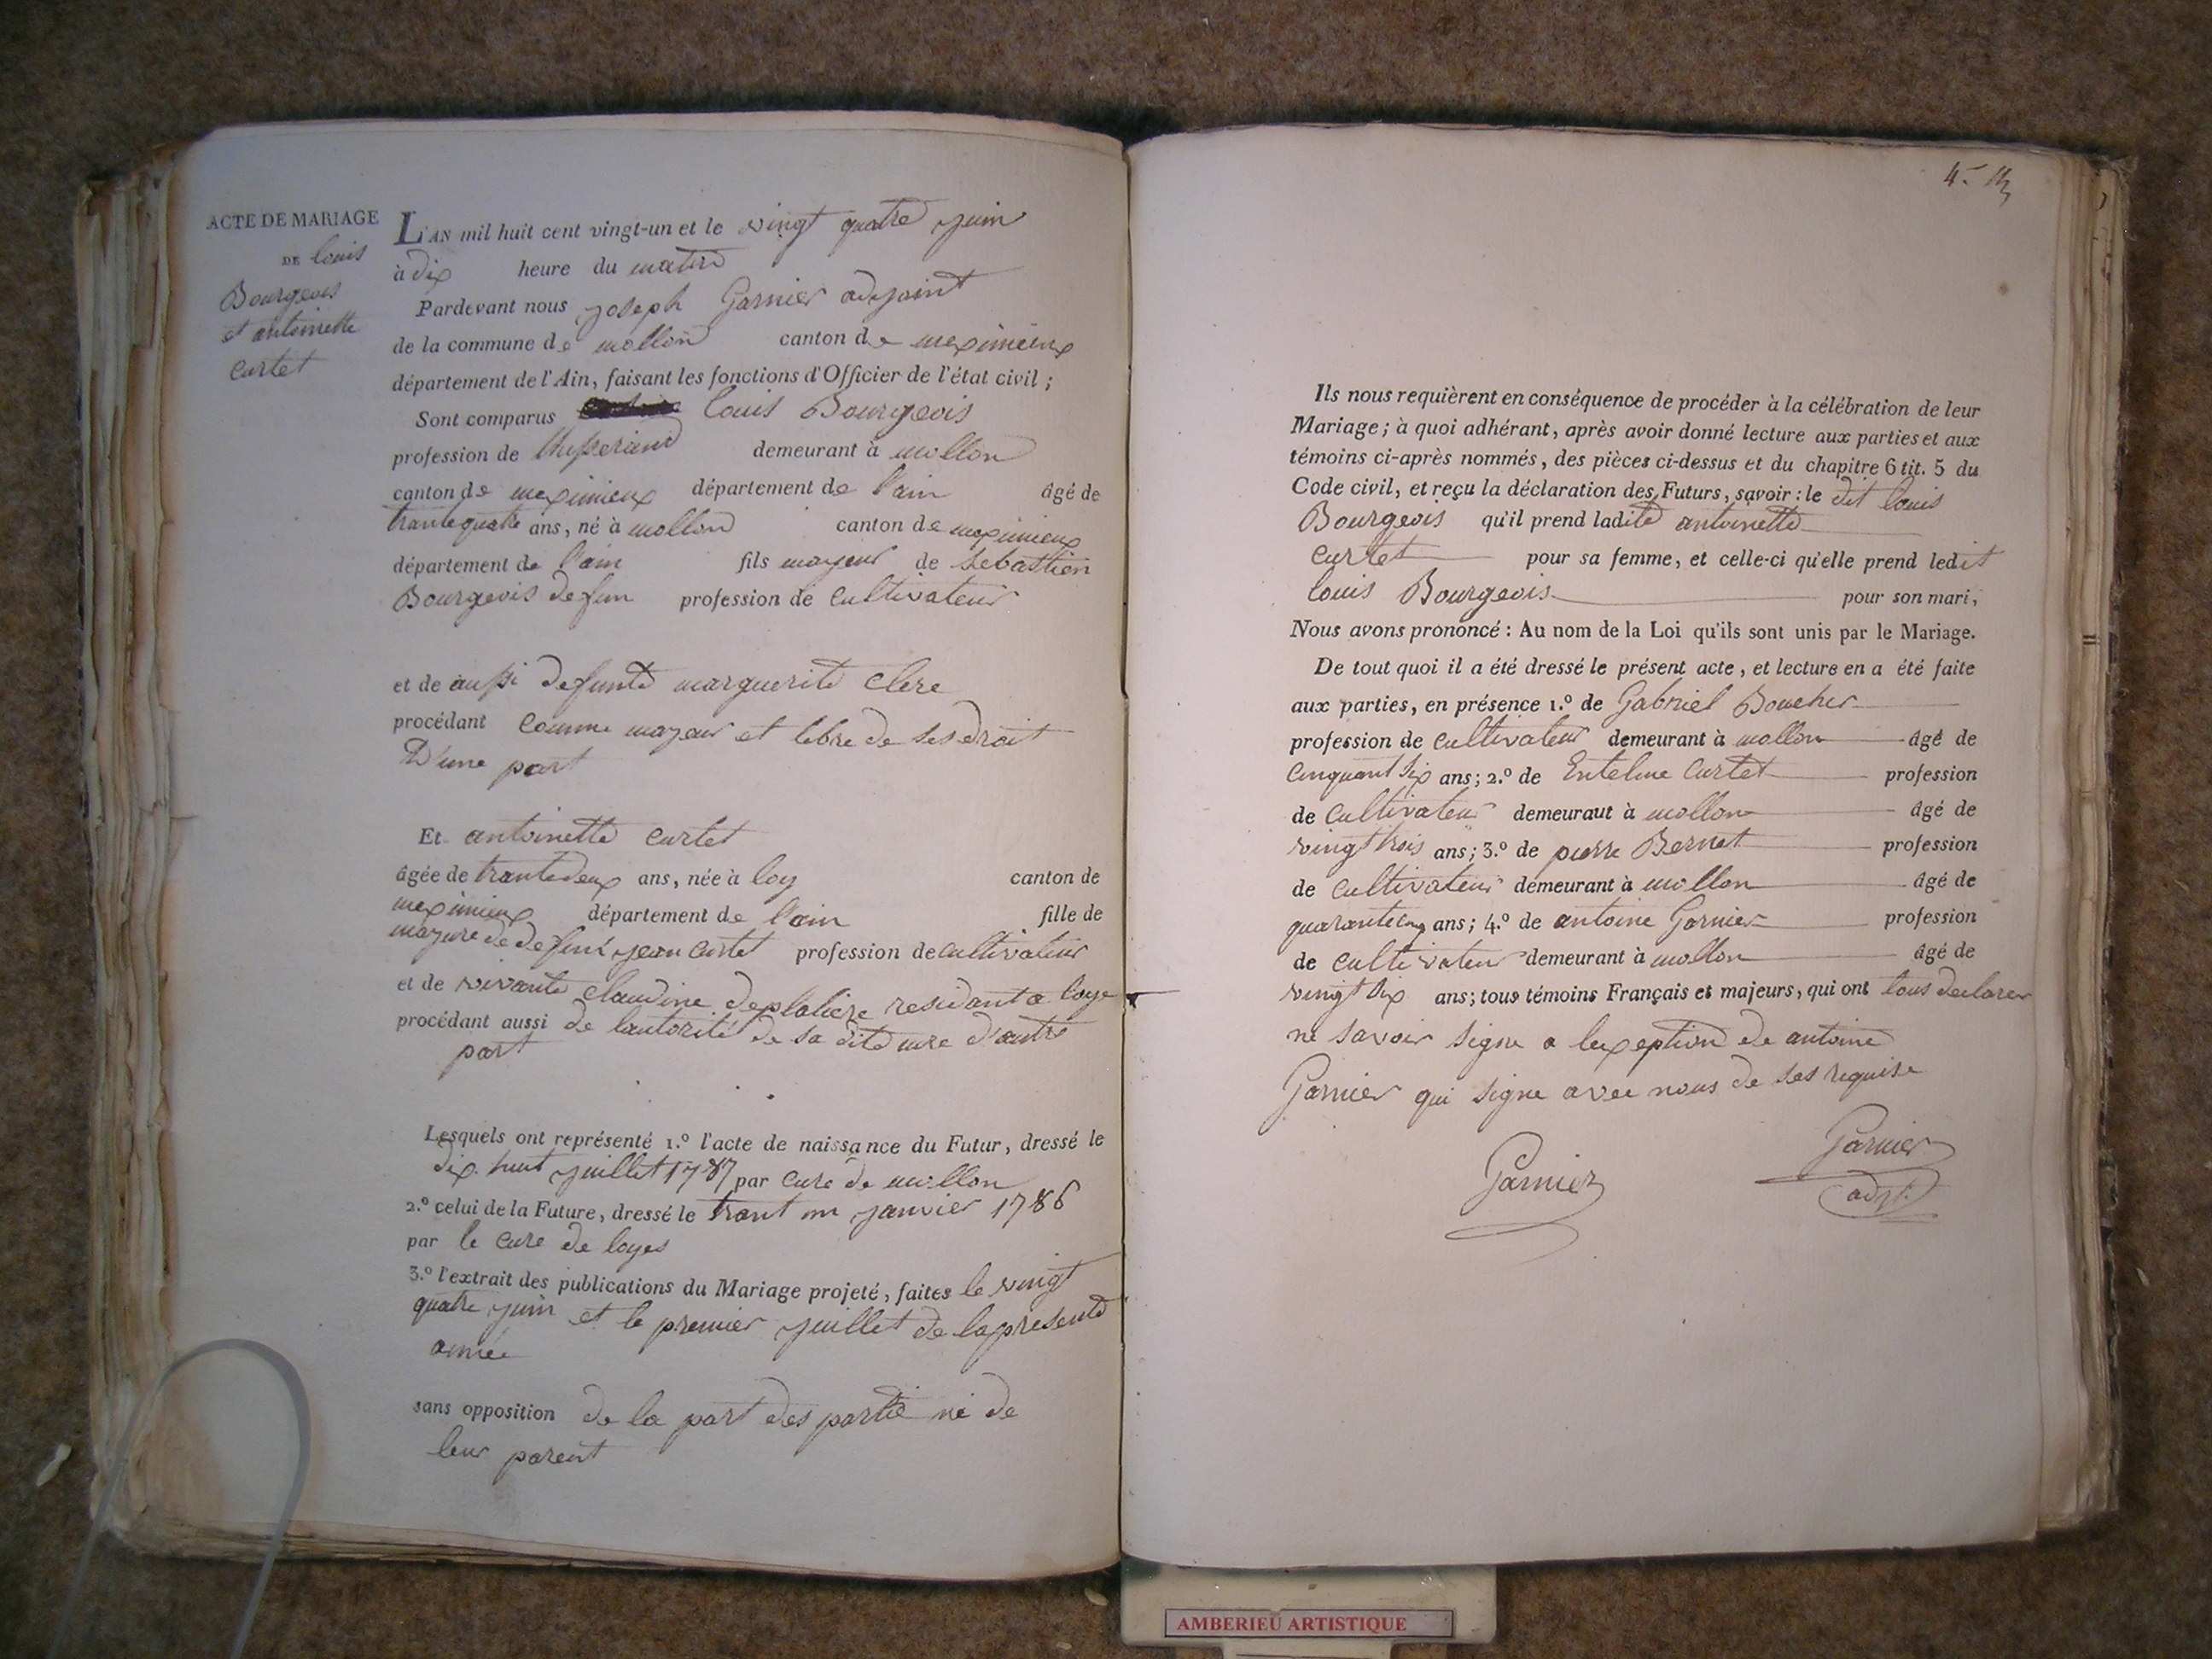 ACTE DE MARIAGE
DE louis
Bourgeois
et antoinette
Curtet
L'AN mil huit cent vingt-un et le vingt quatre juin
à dix heure du matin
Pardevant nous joseph Garnier adjoint
de la commune de mollon canton de meximieux
département de l'Ain, faisant les fonctions d'Officier de l'état civil ;
Sont comparus louis Bourgeois
profession de demeurant à mollon
canton de meximieux département de l'ain âgé de
trantequatre ans, né à mollon canton de meximieux
département de l'ain fils mayeur de sebastien
Bourgeois defun profession de cultivateur
et de aussi defunte marguerite Clere
procédant comme mayeur et libre de ses droit
D'une part
Et antoinette curtet
âgée de trantedeux ans, née à loy canton de
meximieux département de l'ain fille de
mayure de defunt jean curtet profession de cultivateur
et de vivante claudine deplatieze residant a loye
procédant aussi de lautorité de sa dite mere d'autre
part
Lesquels ont représenté 1.º l'acte de naissance du Futur, dressé le
dix huit juillet 1787 par cure de mollon
2.º celui de la Future, dressé le trant un janvier 1786
par le cure de loyes
3.º l'extrait des publications du Mariage projeté, faites le vingt
quatre juin et le premier juillet de la presente
année
sans opposition de la part des partie ni de
leur parent
4.
Ils nous requièrent en conséquence de procéder à la célébration de leur
Mariage ; à quoi adhérant, après avoir donné lecture aux parties et aux
témoins ci-après nommés, des pièces ci-dessus et du chapitre 6 tit. 5 du
Code civil, et reçu la déclaration des Futurs, savoir : le dit louis
Bourgeois qu'il prend ladite antoinette
curtet pour sa femme, et celle-ci qu'elle prend ledit
louis Bourgeois pour son mari,
Nous avons prononcé : Au nom de la Loi qu'ils sont unis par le Mariage.
De tout quoi il a été dressé le présent acte, et lecture en a été faite
aux parties, en présence 1.º de Gabriel Boucher
profession de cultivateur demeurant à mollon âgé de
cinquant six ans ; 2.º de Entelme Curtet profession
de cultivateur demeuraut à mollon âgé de
vingt trois ans ; 3.º de pierre Bernet profession
de cultivateur demeurant à mollon âgé de
quarantecinq ans ; 4.º de antoine Garnier profession
de cultivateur demeurant à mollon âgé de
vingt six ans ; tous témoins Français et majeurs, qui ont tous declarer
ne savoir signe a lexeption de antoine
Garnier qui signe avec nous de ses requise
Garnier
Garnier
adjt.
AMBERIEU ARTISTIQUE